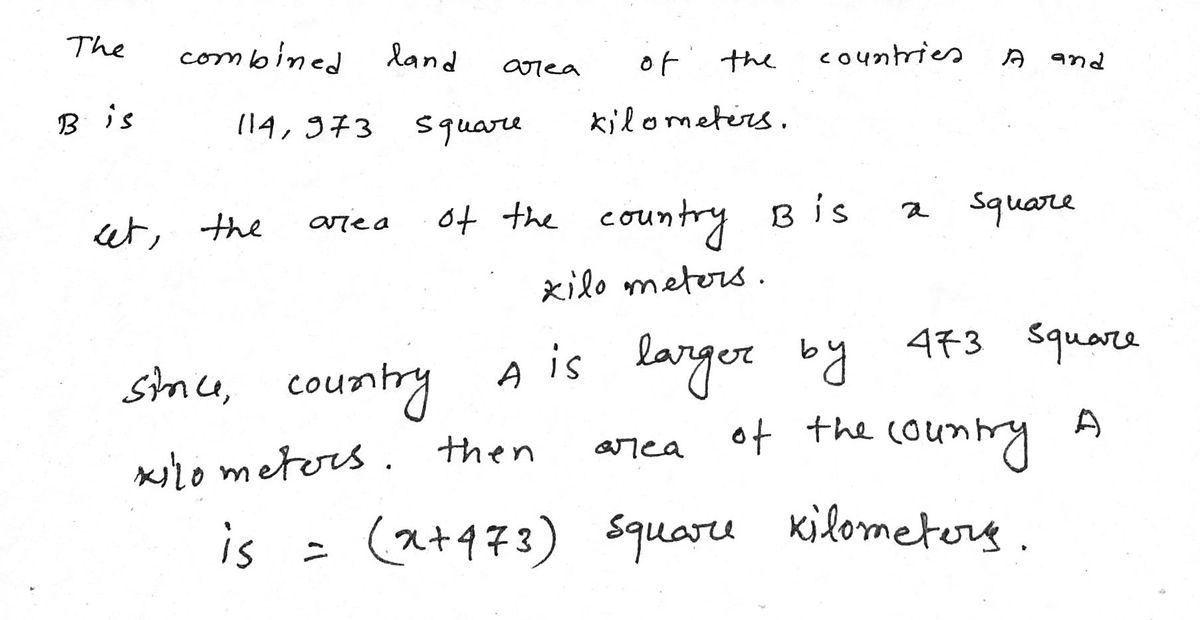 The combined land area of the countries A and
B is 114,973 square kilometers.
Let, the area of the country B is x square
kilo meters.
Since, country A is larger by 473 square
kilo meters. then area of the country A
is = (x+473) square kilometers.